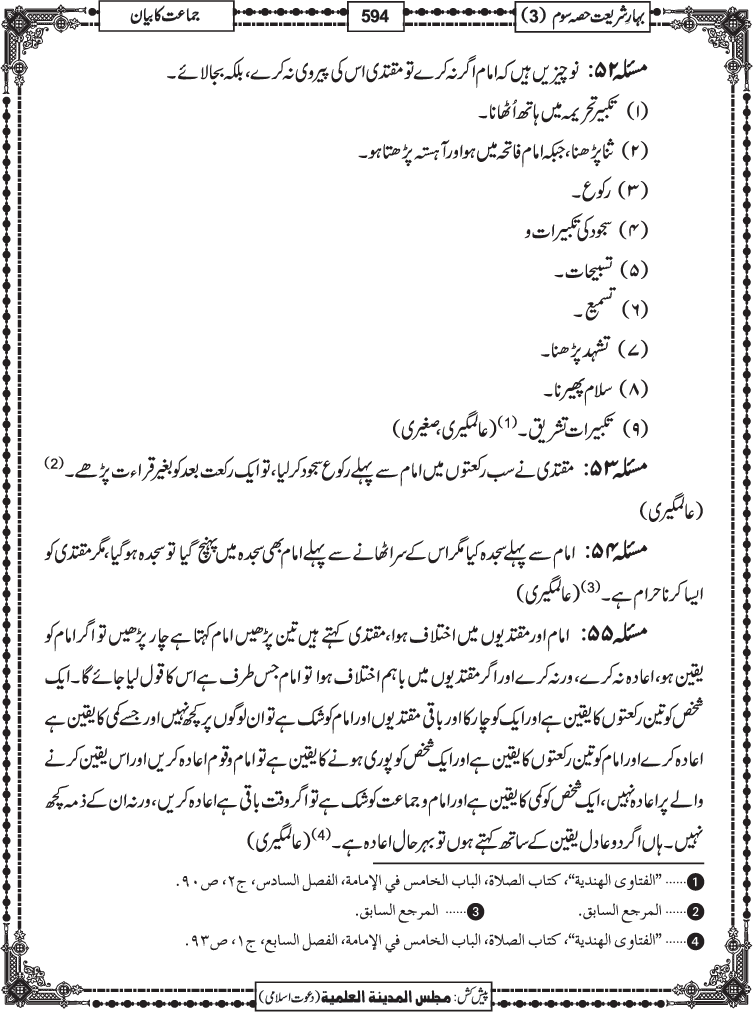 بہار شریعت حصہ سوم (3)
594
جماعت کا بیان
مسئلہ ۵۲: نو چیزیں ہیں کہ امام اگر نہ کرے تو مقتدی اس کی پیروی نہ کرے، بلکہ بجا لائے۔
(۱) تکبیر تحریمہ میں ہاتھ اُٹھانا۔
(۲) ثنا پڑھنا، جبکہ امام فاتحہ میں ہو اور آہستہ پڑھتا ہو۔
(۳) رکوع۔
(۴) سجود کی تکبیرات و
(۵) تسبیحات۔
(۶) تسمیع۔
(۷) تشہد پڑھنا۔
(۸) سلام پھیرنا۔
(۹) تکبیرات تشریق۔(1) (عالمگیری، صغیری)
مسئلہ ۵۳: مقتدی نے سب رکعتوں میں امام سے پہلے رکوع سجود کر لیا، تو ایک رکعت بعد کو بغیر قراءت پڑھے۔(2)
(عالمگیری)
مسئلہ ۵۴: امام سے پہلے سجدہ کیا مگر اس کے سر اٹھانے سے پہلے امام بھی سجدہ میں پہنچ گیا تو سجدہ ہو گیا، مگر مقتدی کو
ایسا کرنا حرام ہے۔(3) (عالمگیری)
مسئلہ ۵۵: امام اور مقتدیوں میں اختلاف ہوا، مقتدی کہتے ہیں تین پڑھیں امام کہتا ہے چار پڑھیں تو اگر امام کو
یقین ہو، اعادہ نہ کرے، ورنہ کرے اور اگر مقتدیوں میں باہم اختلاف ہوا تو امام جس طرف ہے اس کا قول لیا جائے گا۔ ایک
شخص کو تین رکعتوں کا یقین ہے اور ایک کو چار کا اور باقی مقتدیوں اور امام کو شک ہے تو ان لوگوں پر کچھ نہیں اور جسے کمی کا یقین ہے
اعادہ کرے اور امام کو تین رکعتوں کا یقین ہے اور ایک شخص کو پوری ہونے کا یقین ہے تو امام و قوم اعادہ کریں اور اس یقین کرنے
والے پر اعادہ نہیں، ایک شخص کو کمی کا یقین ہے اور امام و جماعت کو شک ہے تو اگر وقت باقی ہے اعادہ کریں، ورنہ ان کے ذمہ کچھ
نہیں۔ ہاں اگر دو عادل یقین کے ساتھ کہتے ہوں تو بہر حال اعادہ ہے۔(4) (عالمگیری)
1 ...... ”الفتاوى الهندية“، كتاب الصلاة، الباب الخامس في الإمامة، الفصل السادس، ج۲، ص۹۰.
2 ...... المرجع السابق. 3 ...... المرجع السابق.
4 ...... ”الفتاوى الهندية“، كتاب الصلاة، الباب الخامس في الإمامة، الفصل السابع، ج۱، ص۹۳.
پیش کش: مجلس المدينة العلمية (دعوت اسلامی)